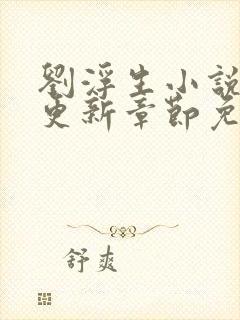 劉浮生小說
更新章節免
舒爽